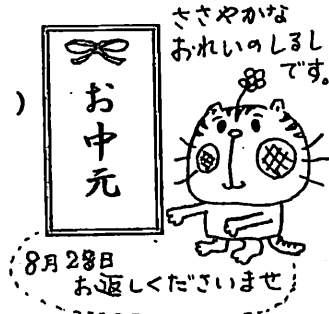 ささやかな
おれいのしるし
です。
お中元
8月28日
お返しくださいませ